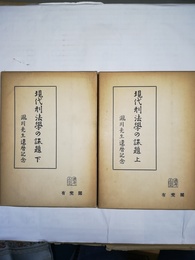 現代刑法學の課題 下
瀧川先生還暦記念
有斐閣
現代刑法學の課題 上
瀧川先生還暦記念
有斐閣